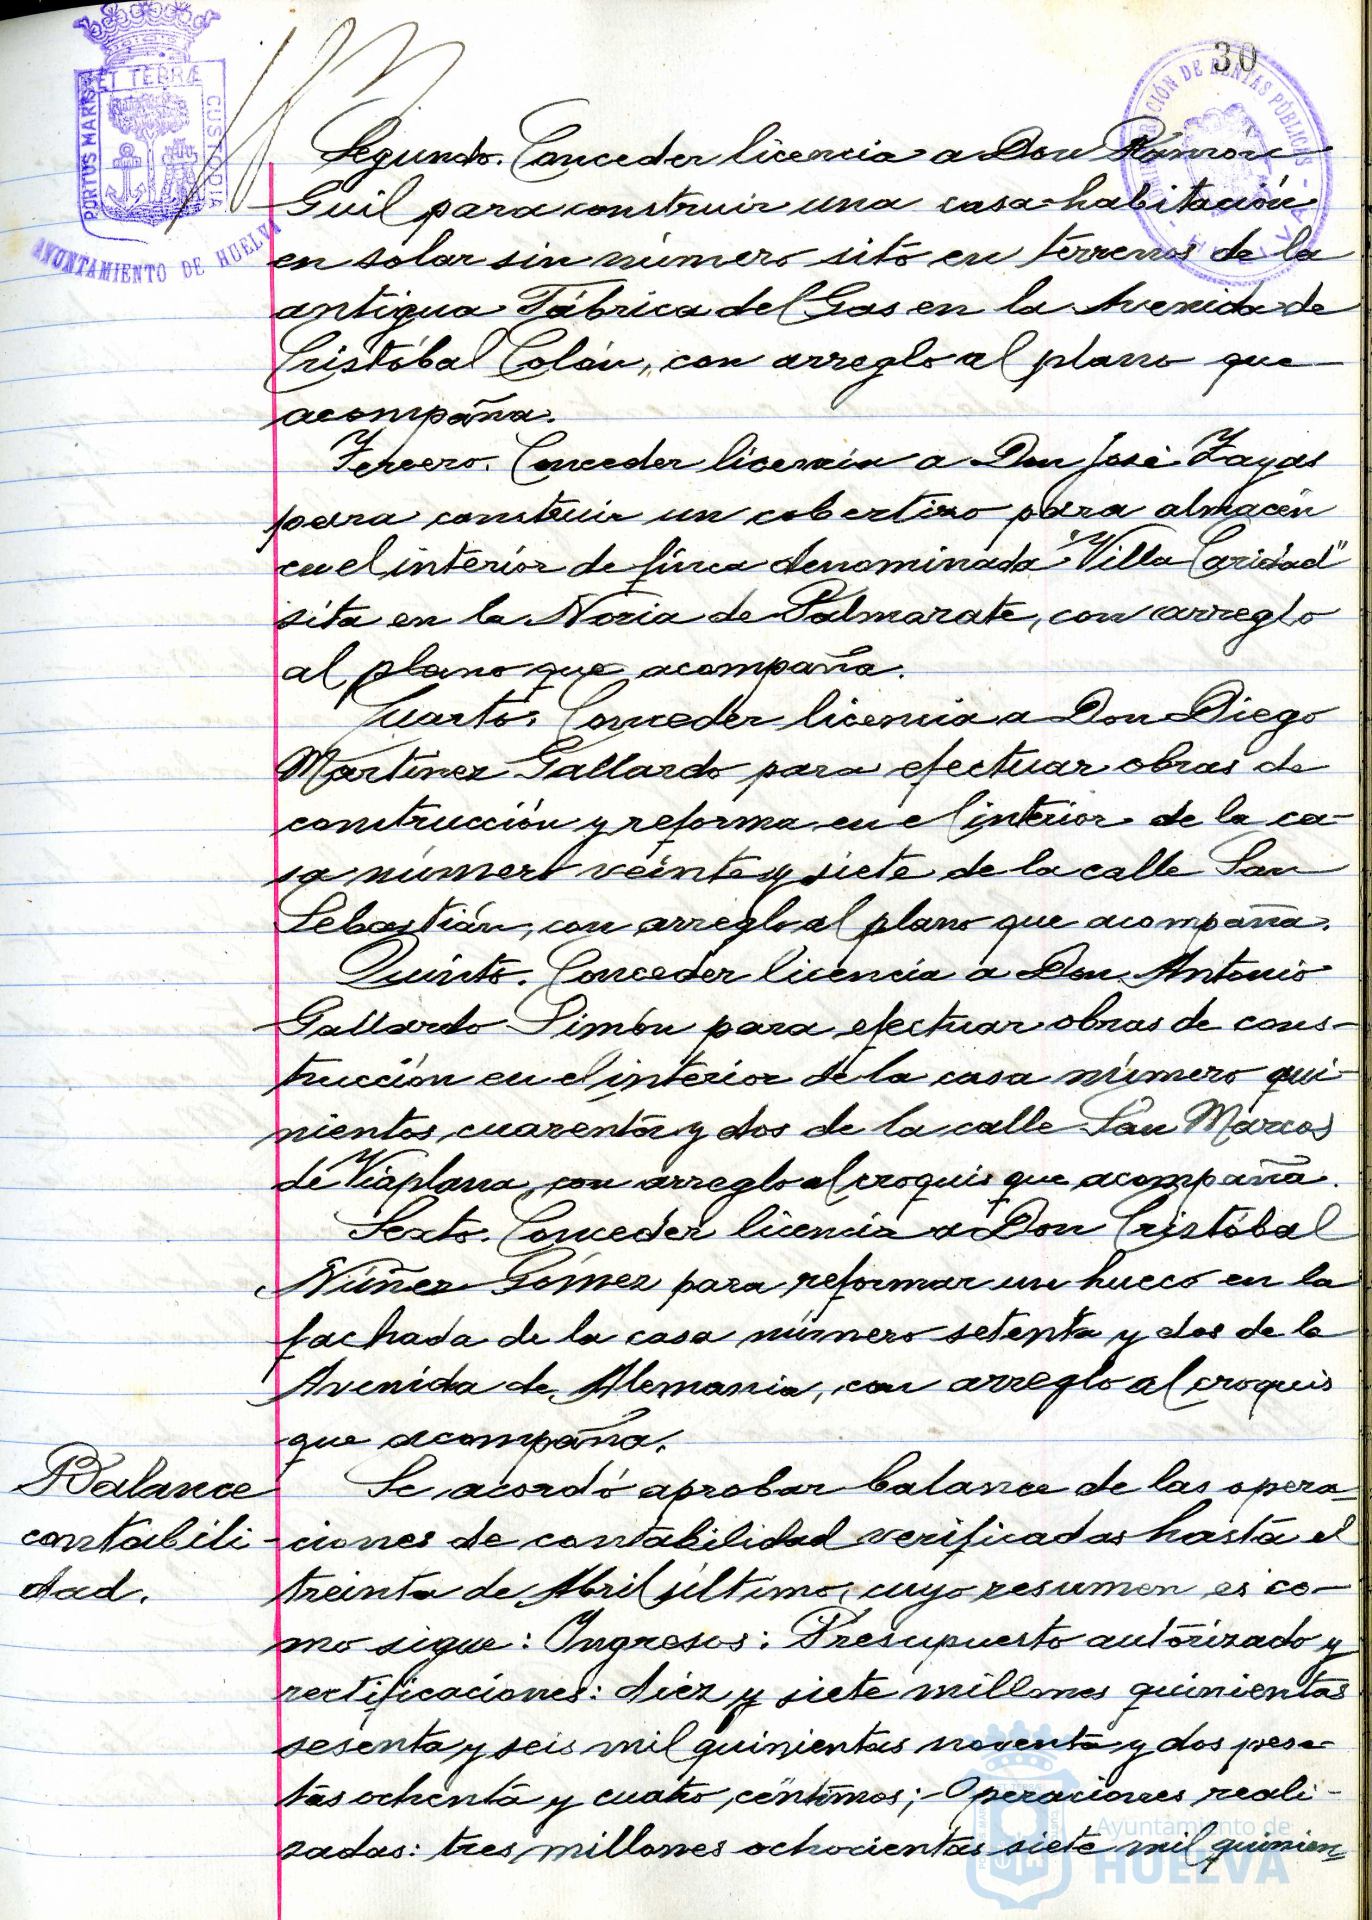 30
PORTUS MARIS ET TERRÆ CUSTODIA
AYUNTAMIENTO DE HUELVA
Segundo. Conceder licencia a Don Ramon
Guil para construir una casa-habitación
en solar sin número sito en terrenos de la
antigua Fábrica del Gas en la Avenida de
Cristóbal Colón, con arreglo al plano que
acompaña.
Tercero. Conceder licencia a Don José Zayas
para construir un cobertizo para almacén
en el interior de finca denominada "Villa Caridad"
sita en la Noria de Palmarate, con arreglo
al plano que acompaña.
Cuarto. Conceder licencia a Don Diego
Martínez Gallardo para efectuar obras de
construcción y reforma en el interior de la ca-
sa número veinte y siete de la calle San
Sebastián, con arreglo al plano que acompaña.
Quinto. Conceder licencia a Don Antonio
Gallardo Simón para efectuar obras de cons-
trucción en el interior de la casa número qui-
nientos cuarenta y dos de la calle San Marcos
de Viaplana, con arreglo al croquis que acompaña.
Sexto. Conceder licencia a Don Cristóbal
Núñez Gómez para reformar un hueco en la
fachada de la casa número setenta y dos de la
Avenida de Alemania, con arreglo al croquis
que acompaña.
Balance
contabili-
dad.
Se acordó aprobar balance de las opera-
ciones de contabilidad verificadas hasta el
treinta de Abril último, cuyo resumen es co-
mo sigue: Ingresos: Presupuesto autorizado y
rectificaciones: diez y siete millones quinientas
sesenta y seis mil quinientas noventa y dos pese-
tas ochenta y cuatro céntimos; Operaciones reali-
zadas: tres millones ochocientas siete mil quinien-
Ayuntamiento de
HUELVA